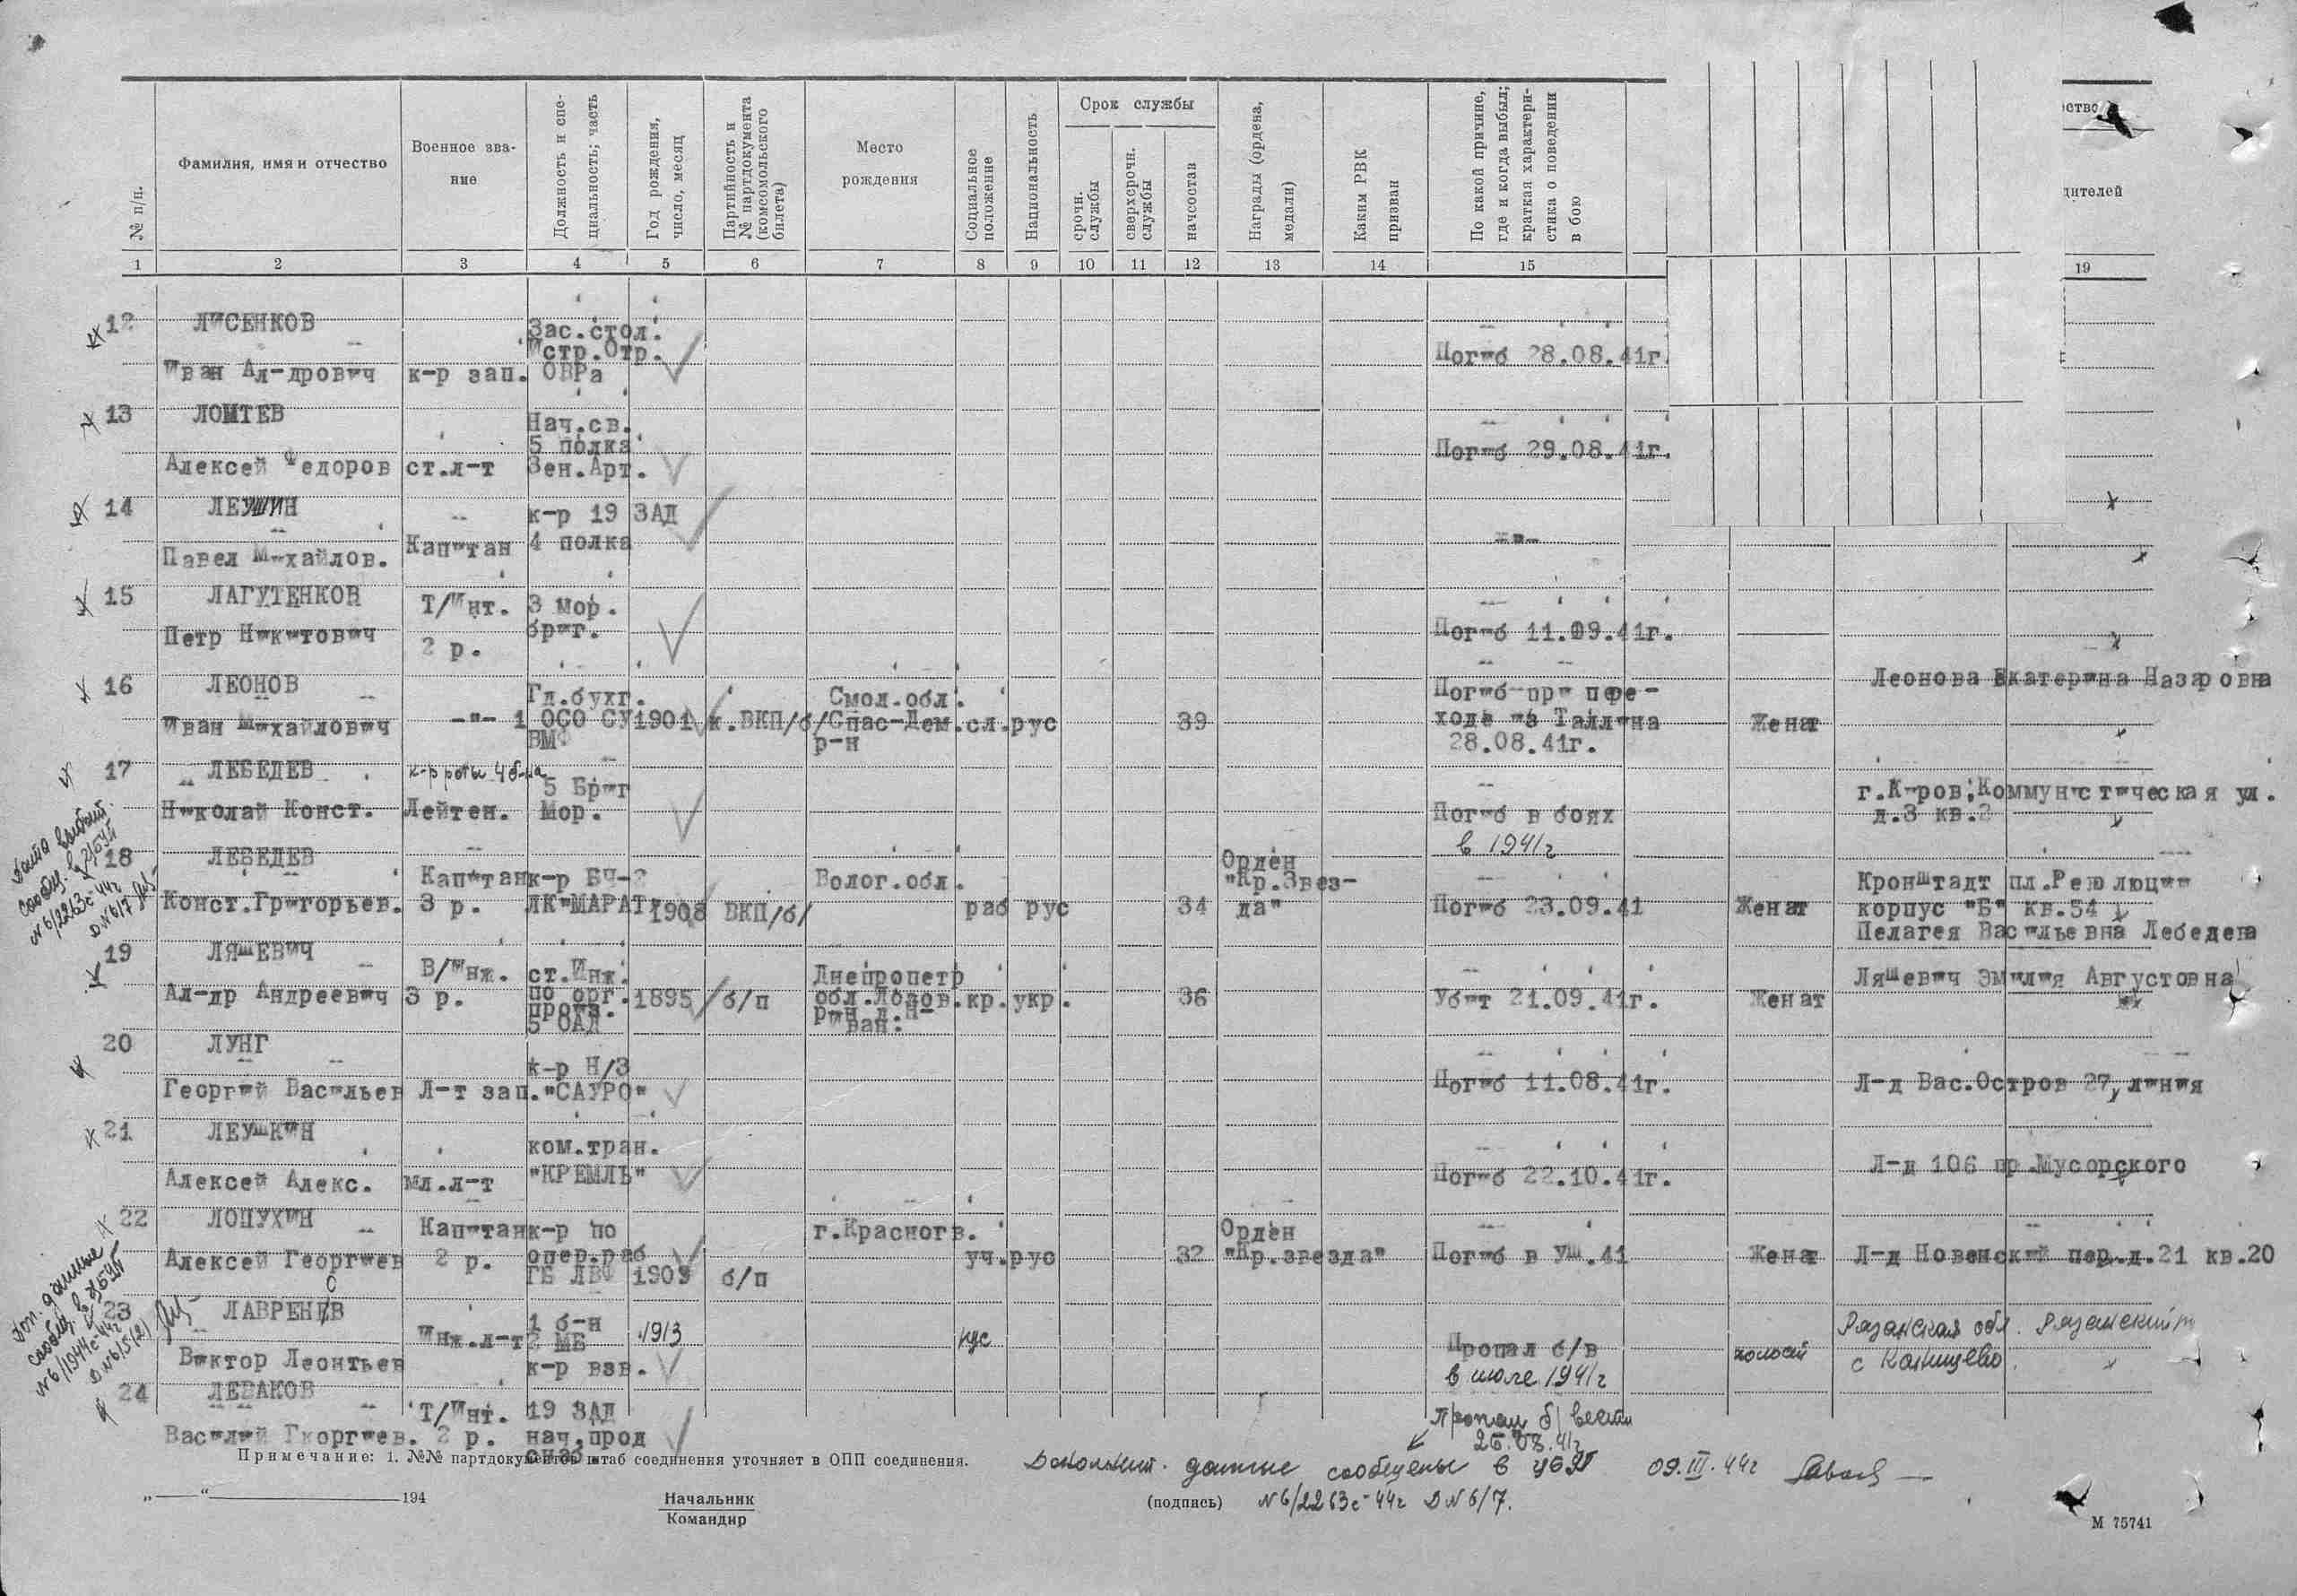 № п/п.
Фамилия, имя и отчество
Военное зва-
ние
Должность и спе-
циальность; часть
Год рождения,
число, месяц
Партийность и
№ партдокумента
(комсомольского
билета)
Место
рождения
Социальное
положение
Национальность
Срок службы
срочн.
службы
сверхсрочн.
службы
начсостав
Награды (ордена,
медали)
Каким РВК
призван
По какой причине,
где и когда выбыл;
краткая характери-
стика о поведении
в бою
1 2 3 4 5 6 7 8 9 10 11 12 13 14 15 19
12 ЛИСЕНКОВ
Зас.стол.
Истр.Отр.
Иван Ал-дрович к-р зап. ОВРа
Погиб 28.08.41г.
13 ЛОМТЕВ
Нач.св.
5 полка
Алексей Федоров ст.л-т Зен.Арт.
Погиб 29.08.41г.
14 ЛЕУШИН
к-р 19 ЗАД
Павел Михайлов. Капитан 4 полка
-"-
15 ЛАГУТЕНКОВ
Т/Инт. 3 мор.
Петр Никитович 2 р. бриг.
Погиб 11.09.41г.
16 ЛЕОНОВ
Гл.бухг. Смол.обл. Погиб при пере-
Леонова Екатерина Назаровна
Иван Михайлович -"- 1 ОСО СУ 1901 к.ВКП/б/ Спас-Дем. сл. рус 39 ходе из Таллина Женат
ВМФ р-н 28.08.41г.
17 ЛЕБЕДЕВ
к-р роты 4 б-на
5 Бриг
Николай Конст. Лейтен. Мор.
Погиб в боях
в 1941г
г.Киров,Коммунистическая ул.
д.3 кв.2
18 ЛЕБЕДЕВ
Капитан к-р БЧ-2 Волог.обл.
Орден
"Кр.Звез-
Конст.Григорьев. 3 р. ЛК"МАРАТ" 1908 ВКП/б/ раб рус 34 да" Погиб 23.09.41 Женат
Кронштадт пл.Революции
корпус "Б" кв.54
Пелагея Васильевна Лебедева
19 ЛЯШЕВИЧ
В/Инж. ст.Инж. Днепропетр
Ляшевич Эмилия Августовна
Ал-др Андреевич 3 р. по орг. 1895 б/п обл.Лозов. кр. укр. 36 Убит 21.09.41г. Женат
5 ОАД
20 ЛУНГ
к-р Н/З
Георгий Васильев Л-т зап. "САУРО"
Погиб 11.08.41г. Л-д Вас.Остров 27, линия
21 ЛЕУШКИН
ком.тран.
Алексей Алекс. мл.л-т "КРЕМЛЬ"
Погиб 22.10.41г. Л-д 106 пр.Мусорского
22 ЛОПУХИН
Капитан к-р по г.Красногв. Орден
Алексей Георгиев 2 р. опер.раб уч. рус 32 "Кр.звезда" Погиб в УШ.41 Женат Л-д Новенский пер.д.21 кв.20
ГБ ЛВФ 1909 б/п
23 ЛАВРЕНЕВ
1 б-н
Инж.л-т 2 МБ 1913 рус
Виктор Леонтьев к-р взв.
Пропал б/в
в июле 1941г
холост
Рязанская обл. Рязанский
с Канищево
24 ЛЕВАКОВ
Т/Инт. 19 ЗАД
Василий Гкоргиев. 2 р. нач.прод
снаб.
Пропал б/вести
28.08.41г
Дата выбыт.
сообщ. в
№6/2263с-44г
Д№6/7
Доп. данные
сообщ. в
№6/1944с-44г
Д№6/5(2)
Примечание: 1. №№ партдокументов штаб соединения уточняет в ОПП соединения.
Дополнит. данные сообщены в 09.III.44г
№6/2263с-44г Д№6/7.
„ “ 194
Начальник
Командир
(подпись)
М 75741